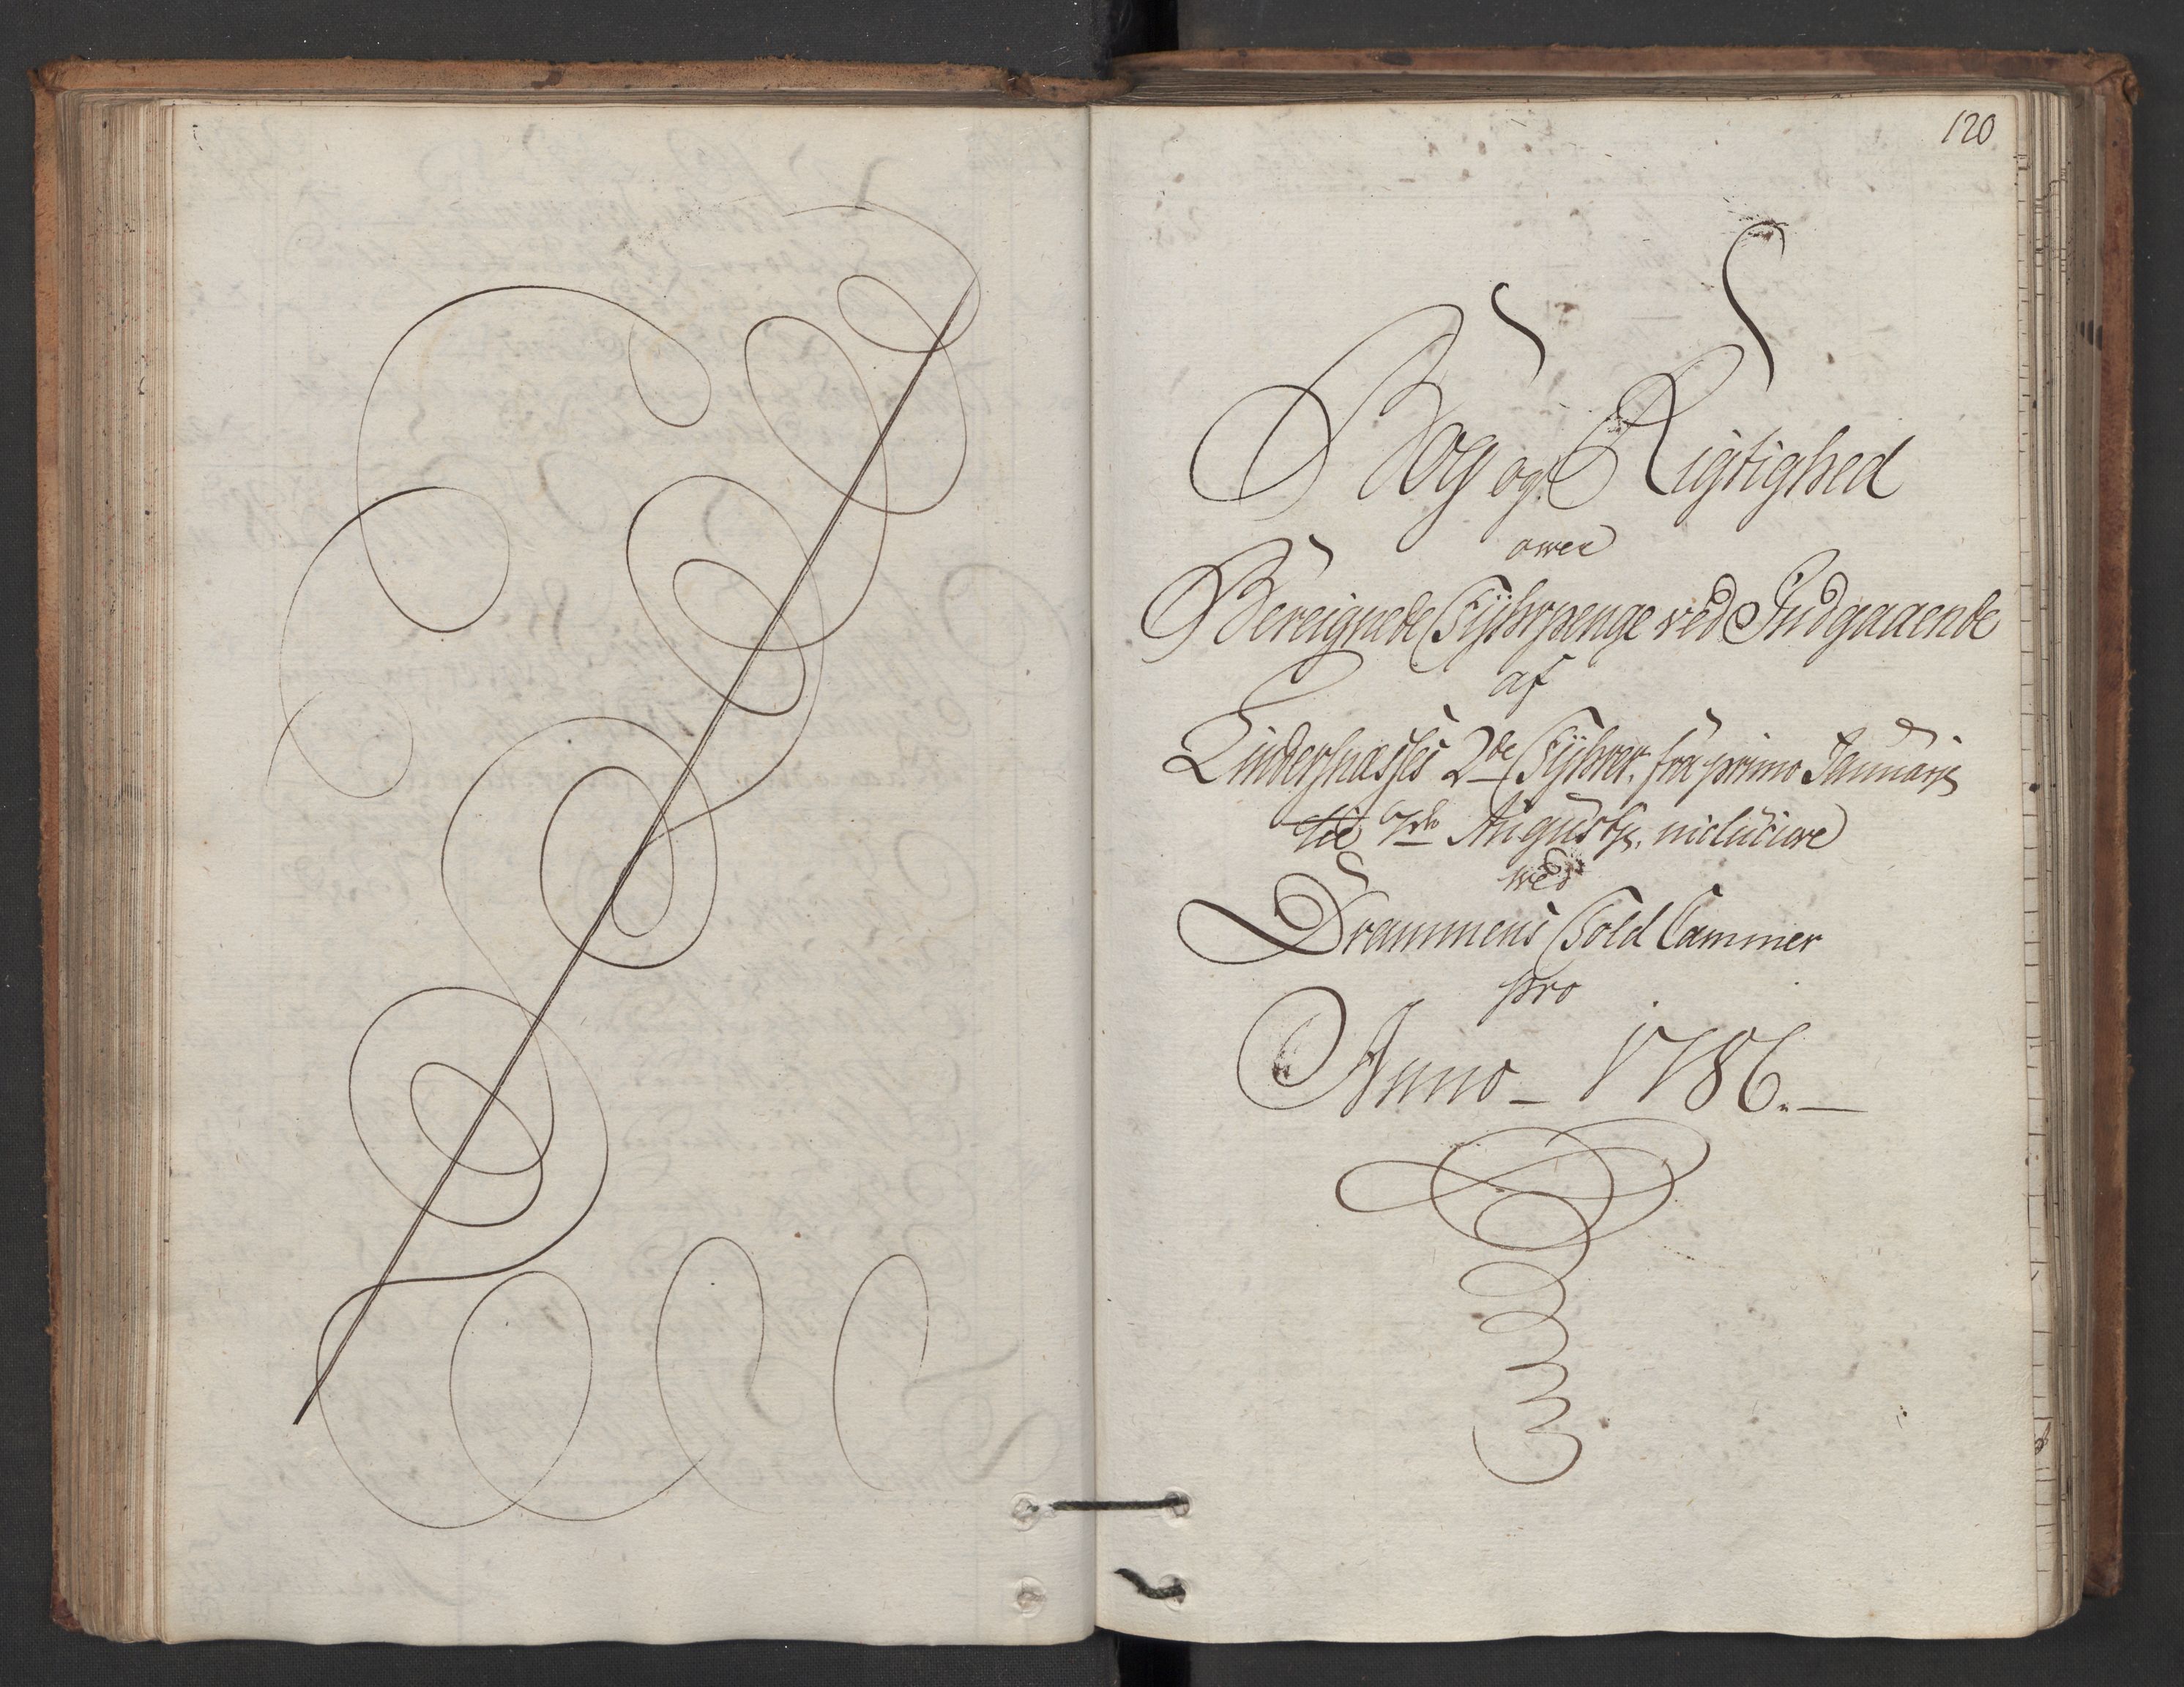 120
Bog og Rigtighed
over
Bereignede Fyhrpenge ved Indgaaende
af
Lindersnæsses 2de Fyhrer, fra primo Januarii
til 7de Augusti, inclusive
ved
Drammens Told Cammer
pro
Anno – 1786. –